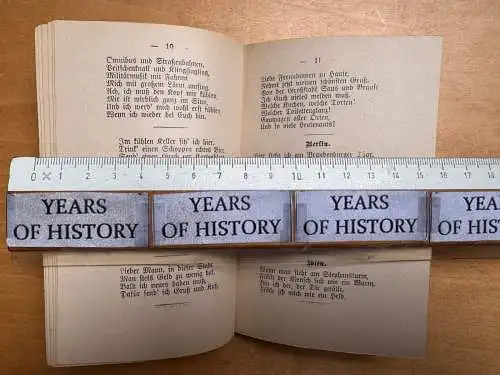 — 10 —
Omnibus und Straßenbahnen,
Peitschenknall und Klingklingling,
Militärmusik mit Fahnen
Mich mit großem Lärm umfing.
Ach, ich muß den Kopf mir kühlen,
Mir ist wirklich ganz im Sinn,
Und ich werd' mich erst wohl fühlen,
Wenn ich wieder bei Euch bin.
Im kühlen Keller sitz' ich hier,
Trink' einen Schoppen echtes Bier,
Send' einen Gruß
Lieber Mann, in dieser Stadt
Man stets Geld zu wenig hat.
Bald ich neues haben muß,
Dafür send' ich Gruß und Kuß.
— 11 —
Liebe Freundinnen zu Hause,
Nehmt jetzt meinen schönsten Gruß,
Von der Großstadt Saus und Brause
Ich Euch vieles melden muß.
Welche Kuchen, welche Torten!
Welcher Toilettenglanz!
Equipagen aller Orten,
Und so viele Lieutenants!
Berlin.
Hier steh ich am Brandenburger Thor,
0 1 2 3 4 5 6 7 8 9 10 11 12 13 14 15 16
YEARS OF HISTORY
YEARS OF HISTORY
YEARS OF HISTORY
YEARS OF HIST
Wien.
Wenn man steht am Stephansturm,
Fühlt der Mensch sich wie ein Wurm.
Bin ich bei der, die Die gefällt,
Fühle ich mich wie ein Held.